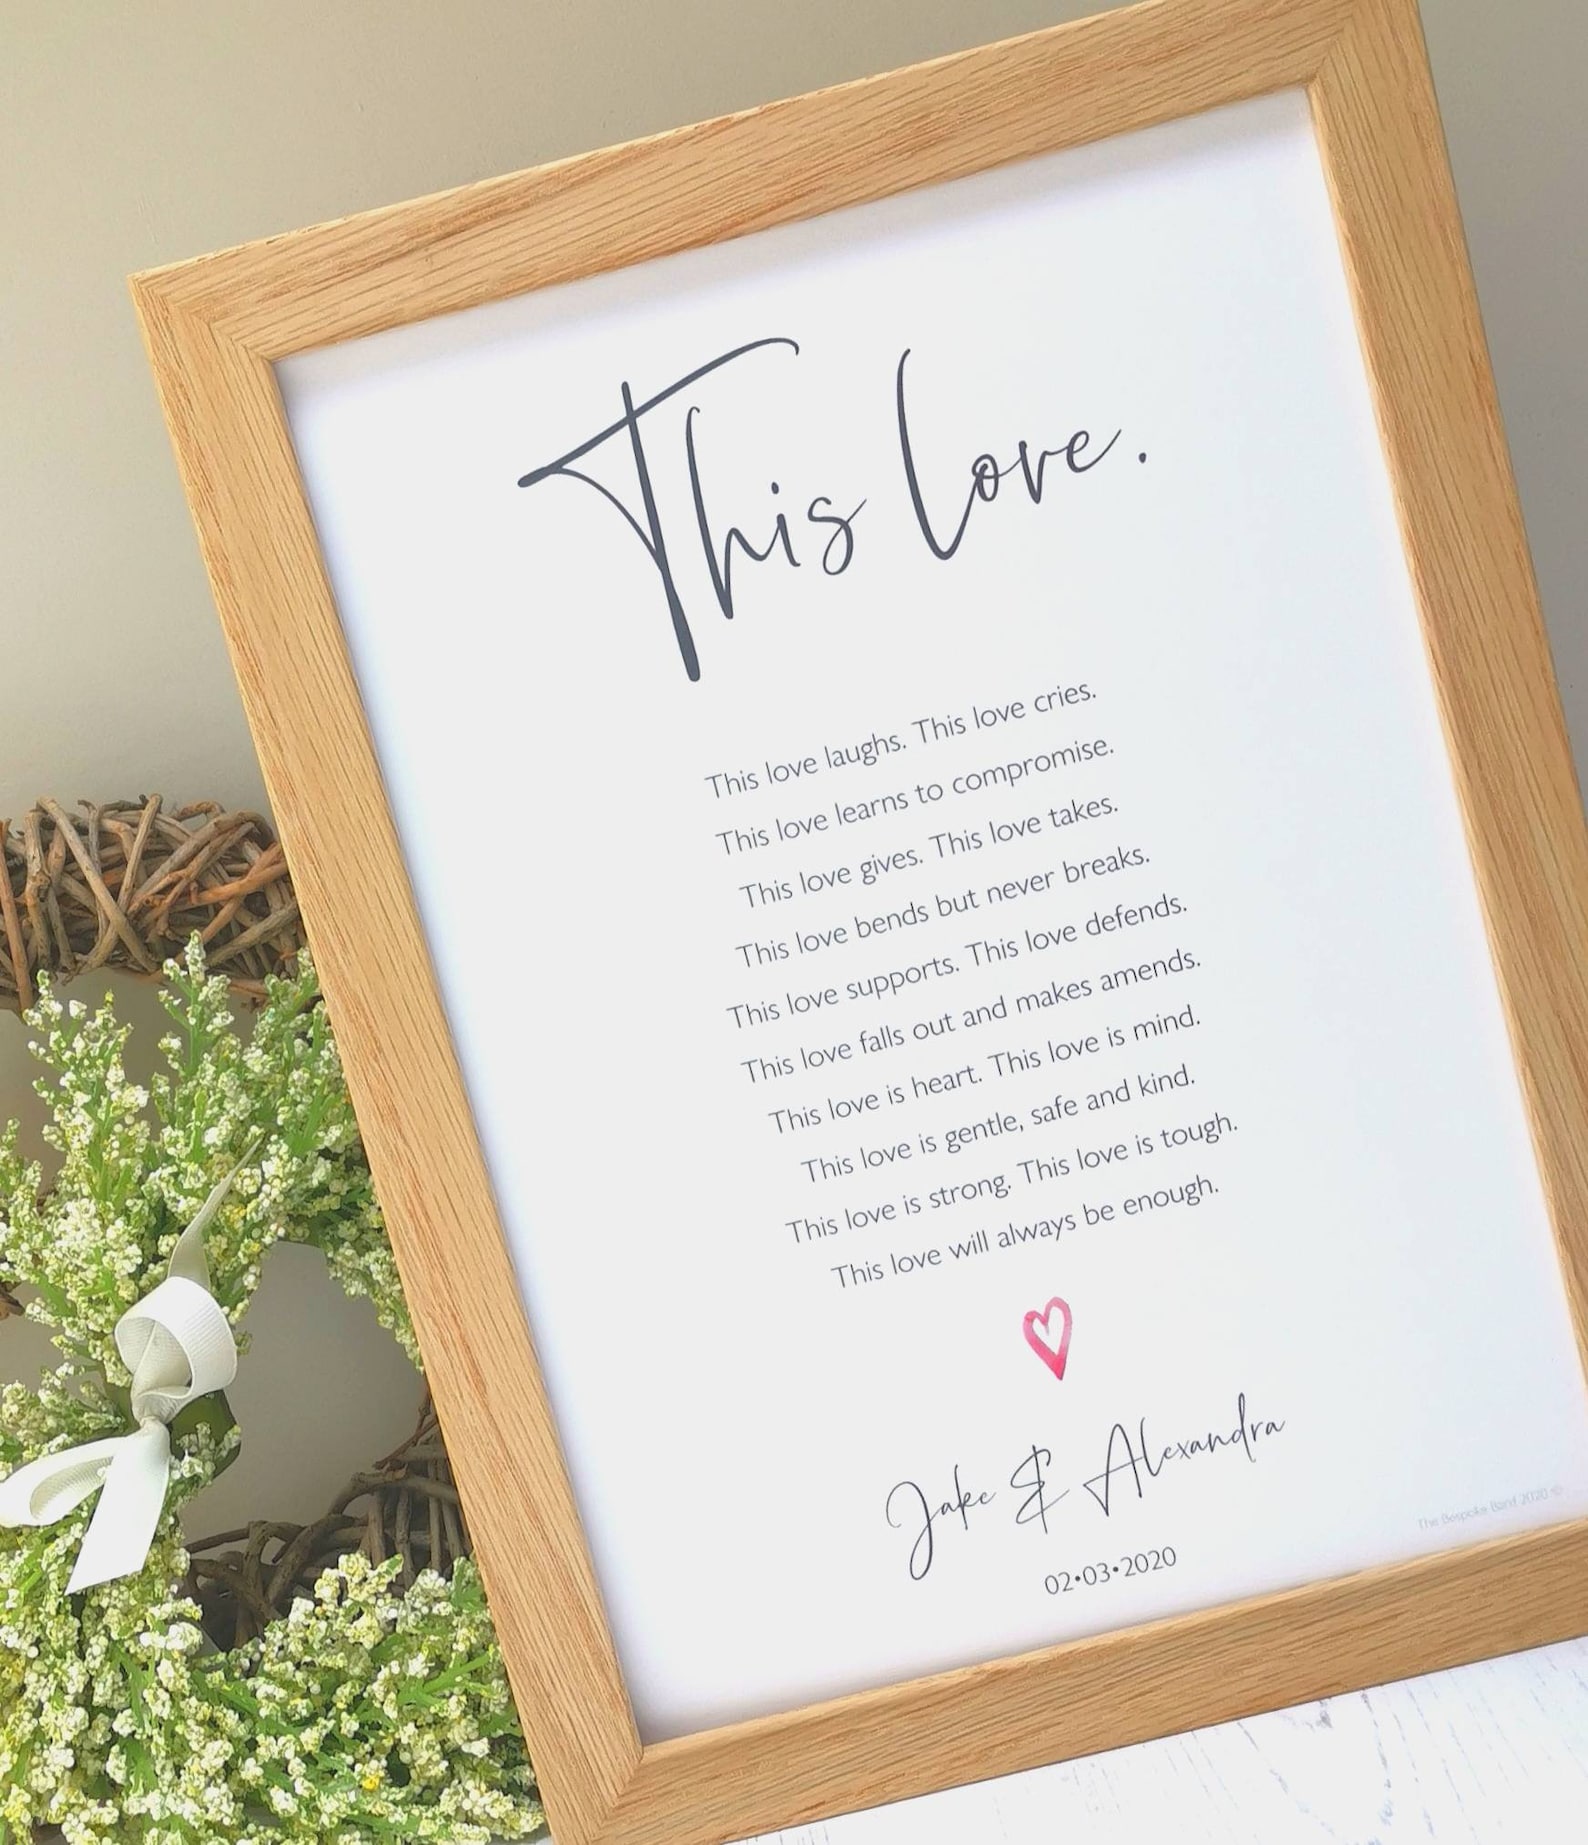 This love.
This love laughs. This love cries.
This love learns to compromise.
This love gives. This love takes.
This love bends but never breaks.
This love supports. This love defends.
This love falls out and makes amends.
This love is heart. This love is mind.
This love is gentle, safe and kind.
This love is strong. This love is tough.
This love will always be enough.
Jake & Alexandra
02•03•2020
The Bespoke Bard 2020 ©